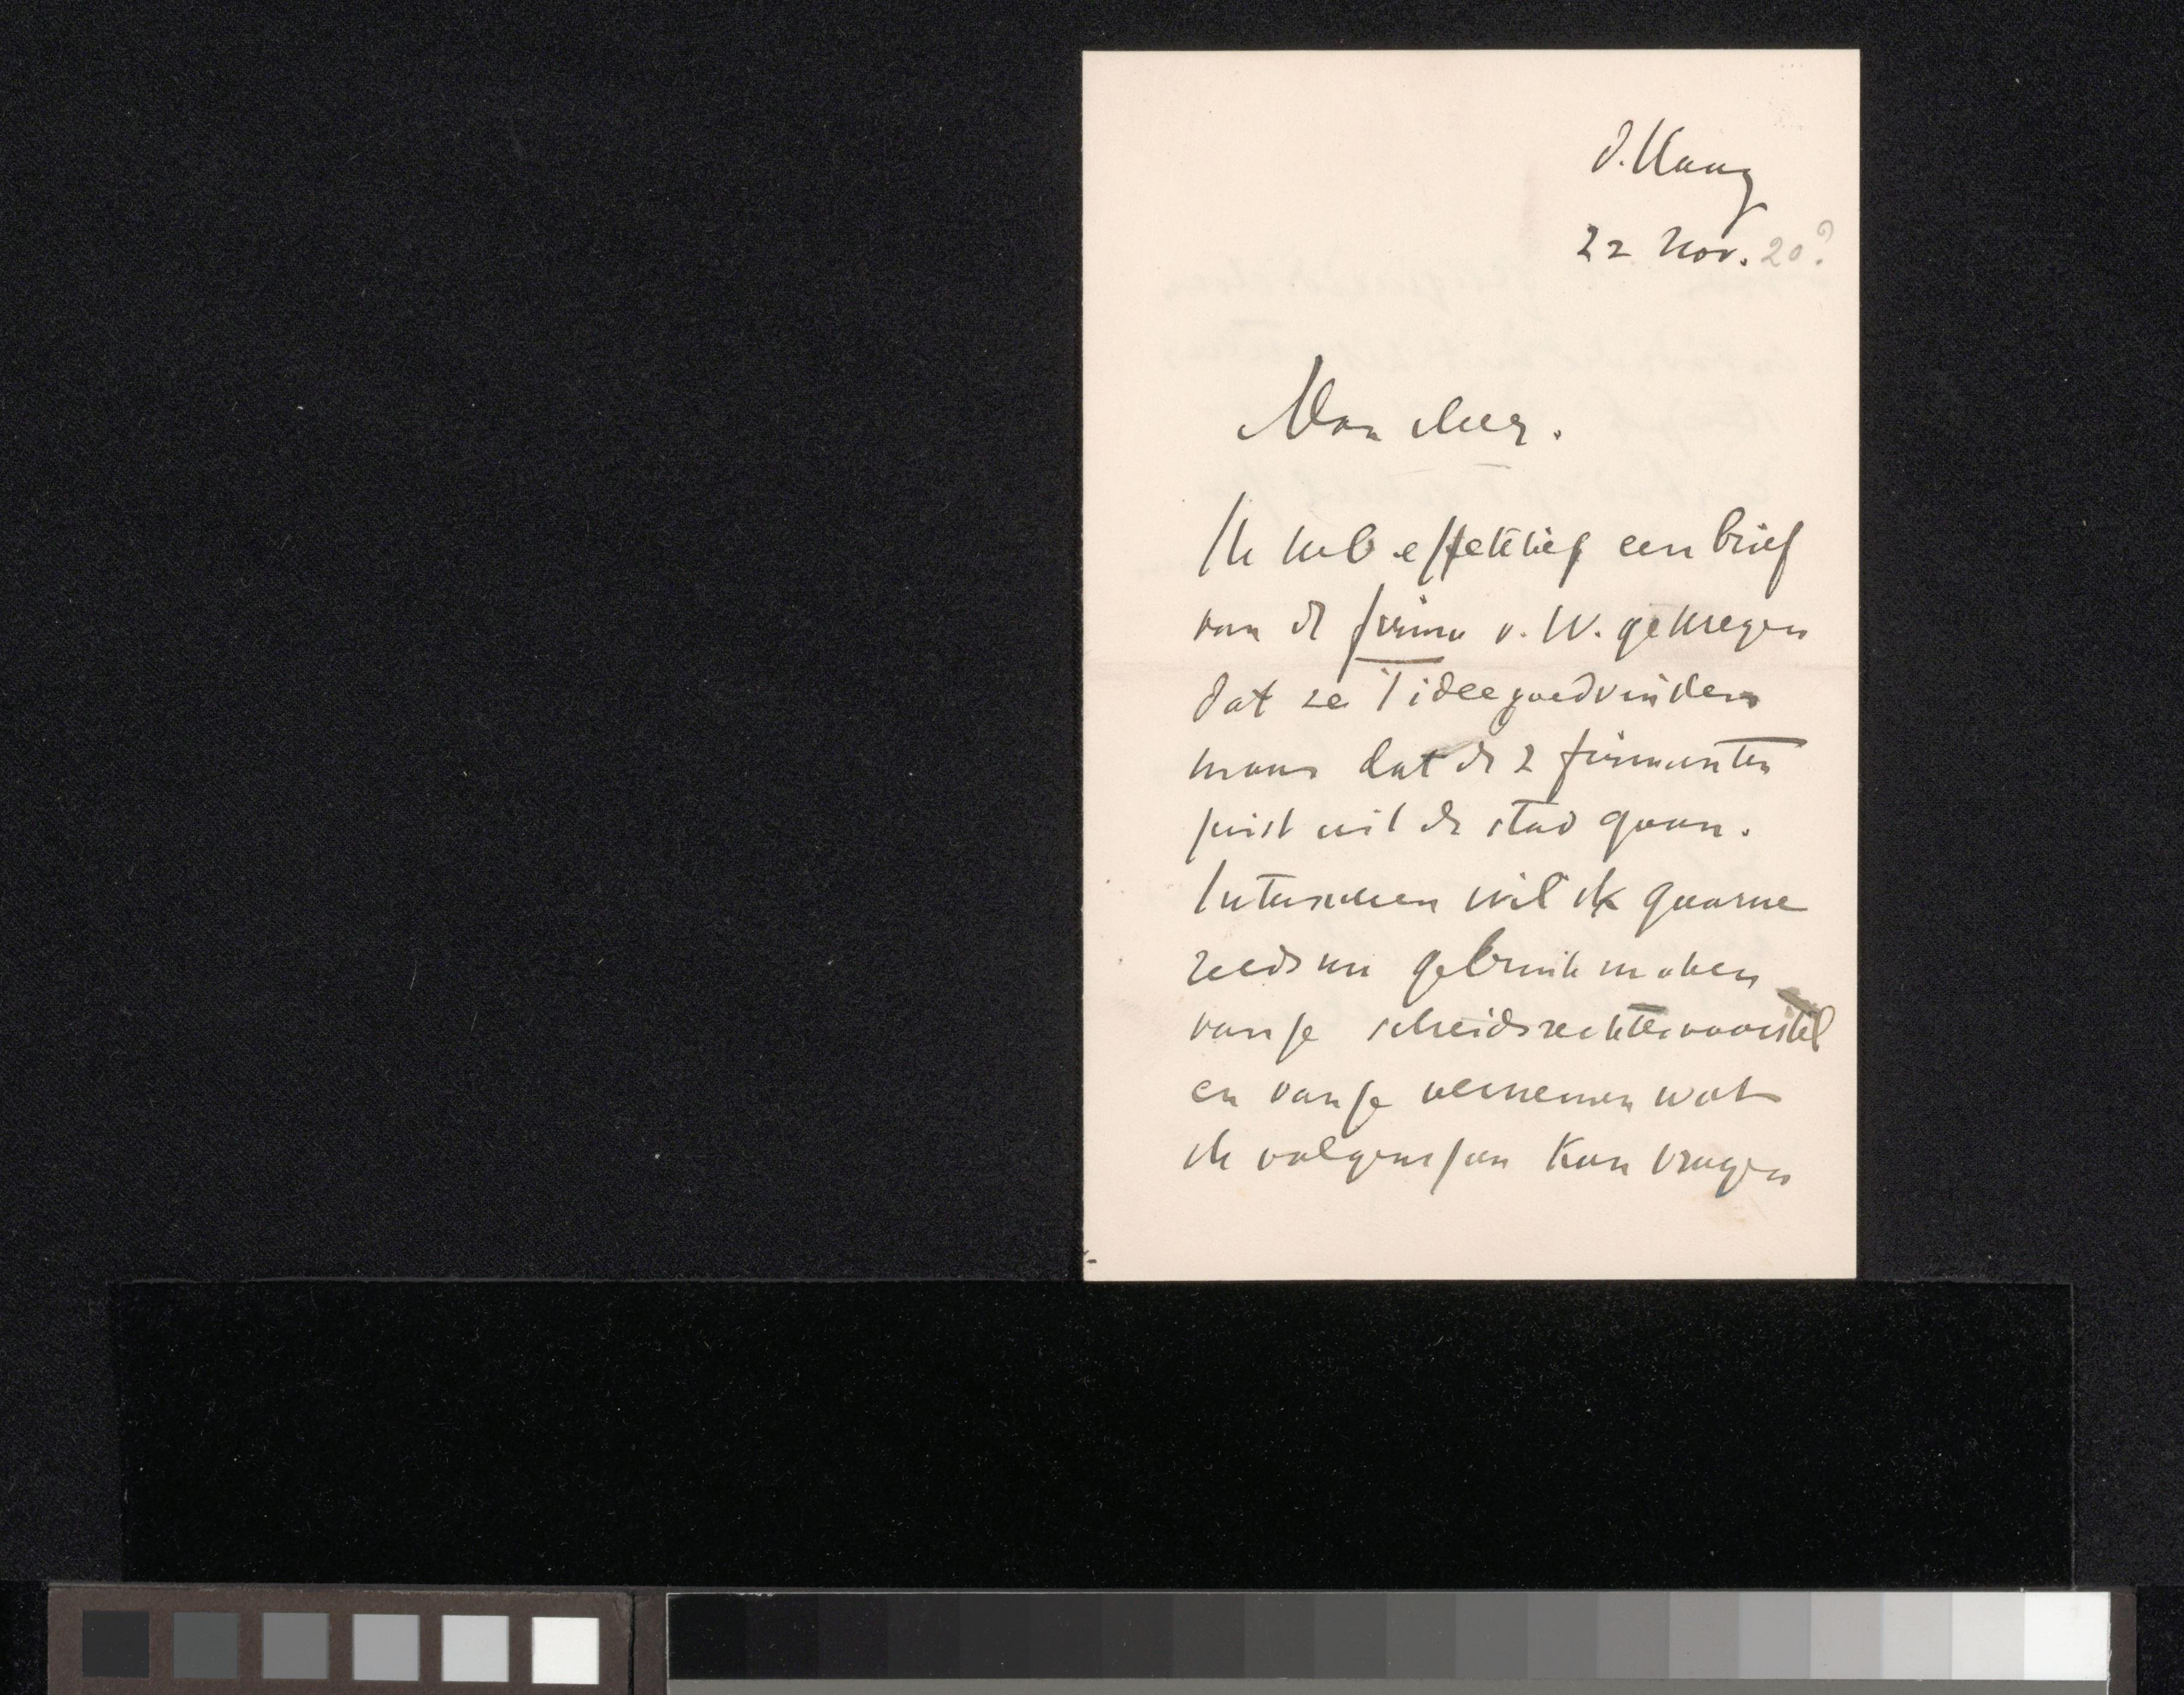 d. Haag
22 Nov. 20?
Mon cher.
Ik heb effektief een brief
van de firma v. W. gekregen
dat ze 't idee goedvinden
maar dat de 2 firmanten
juist uit de stad gaan.
Intusschen wil ik gaarne
reeds nu gebruik maken
van je scheidsrechtervoorstel
en van je vernemen wat
ik volgens jou kan vragen